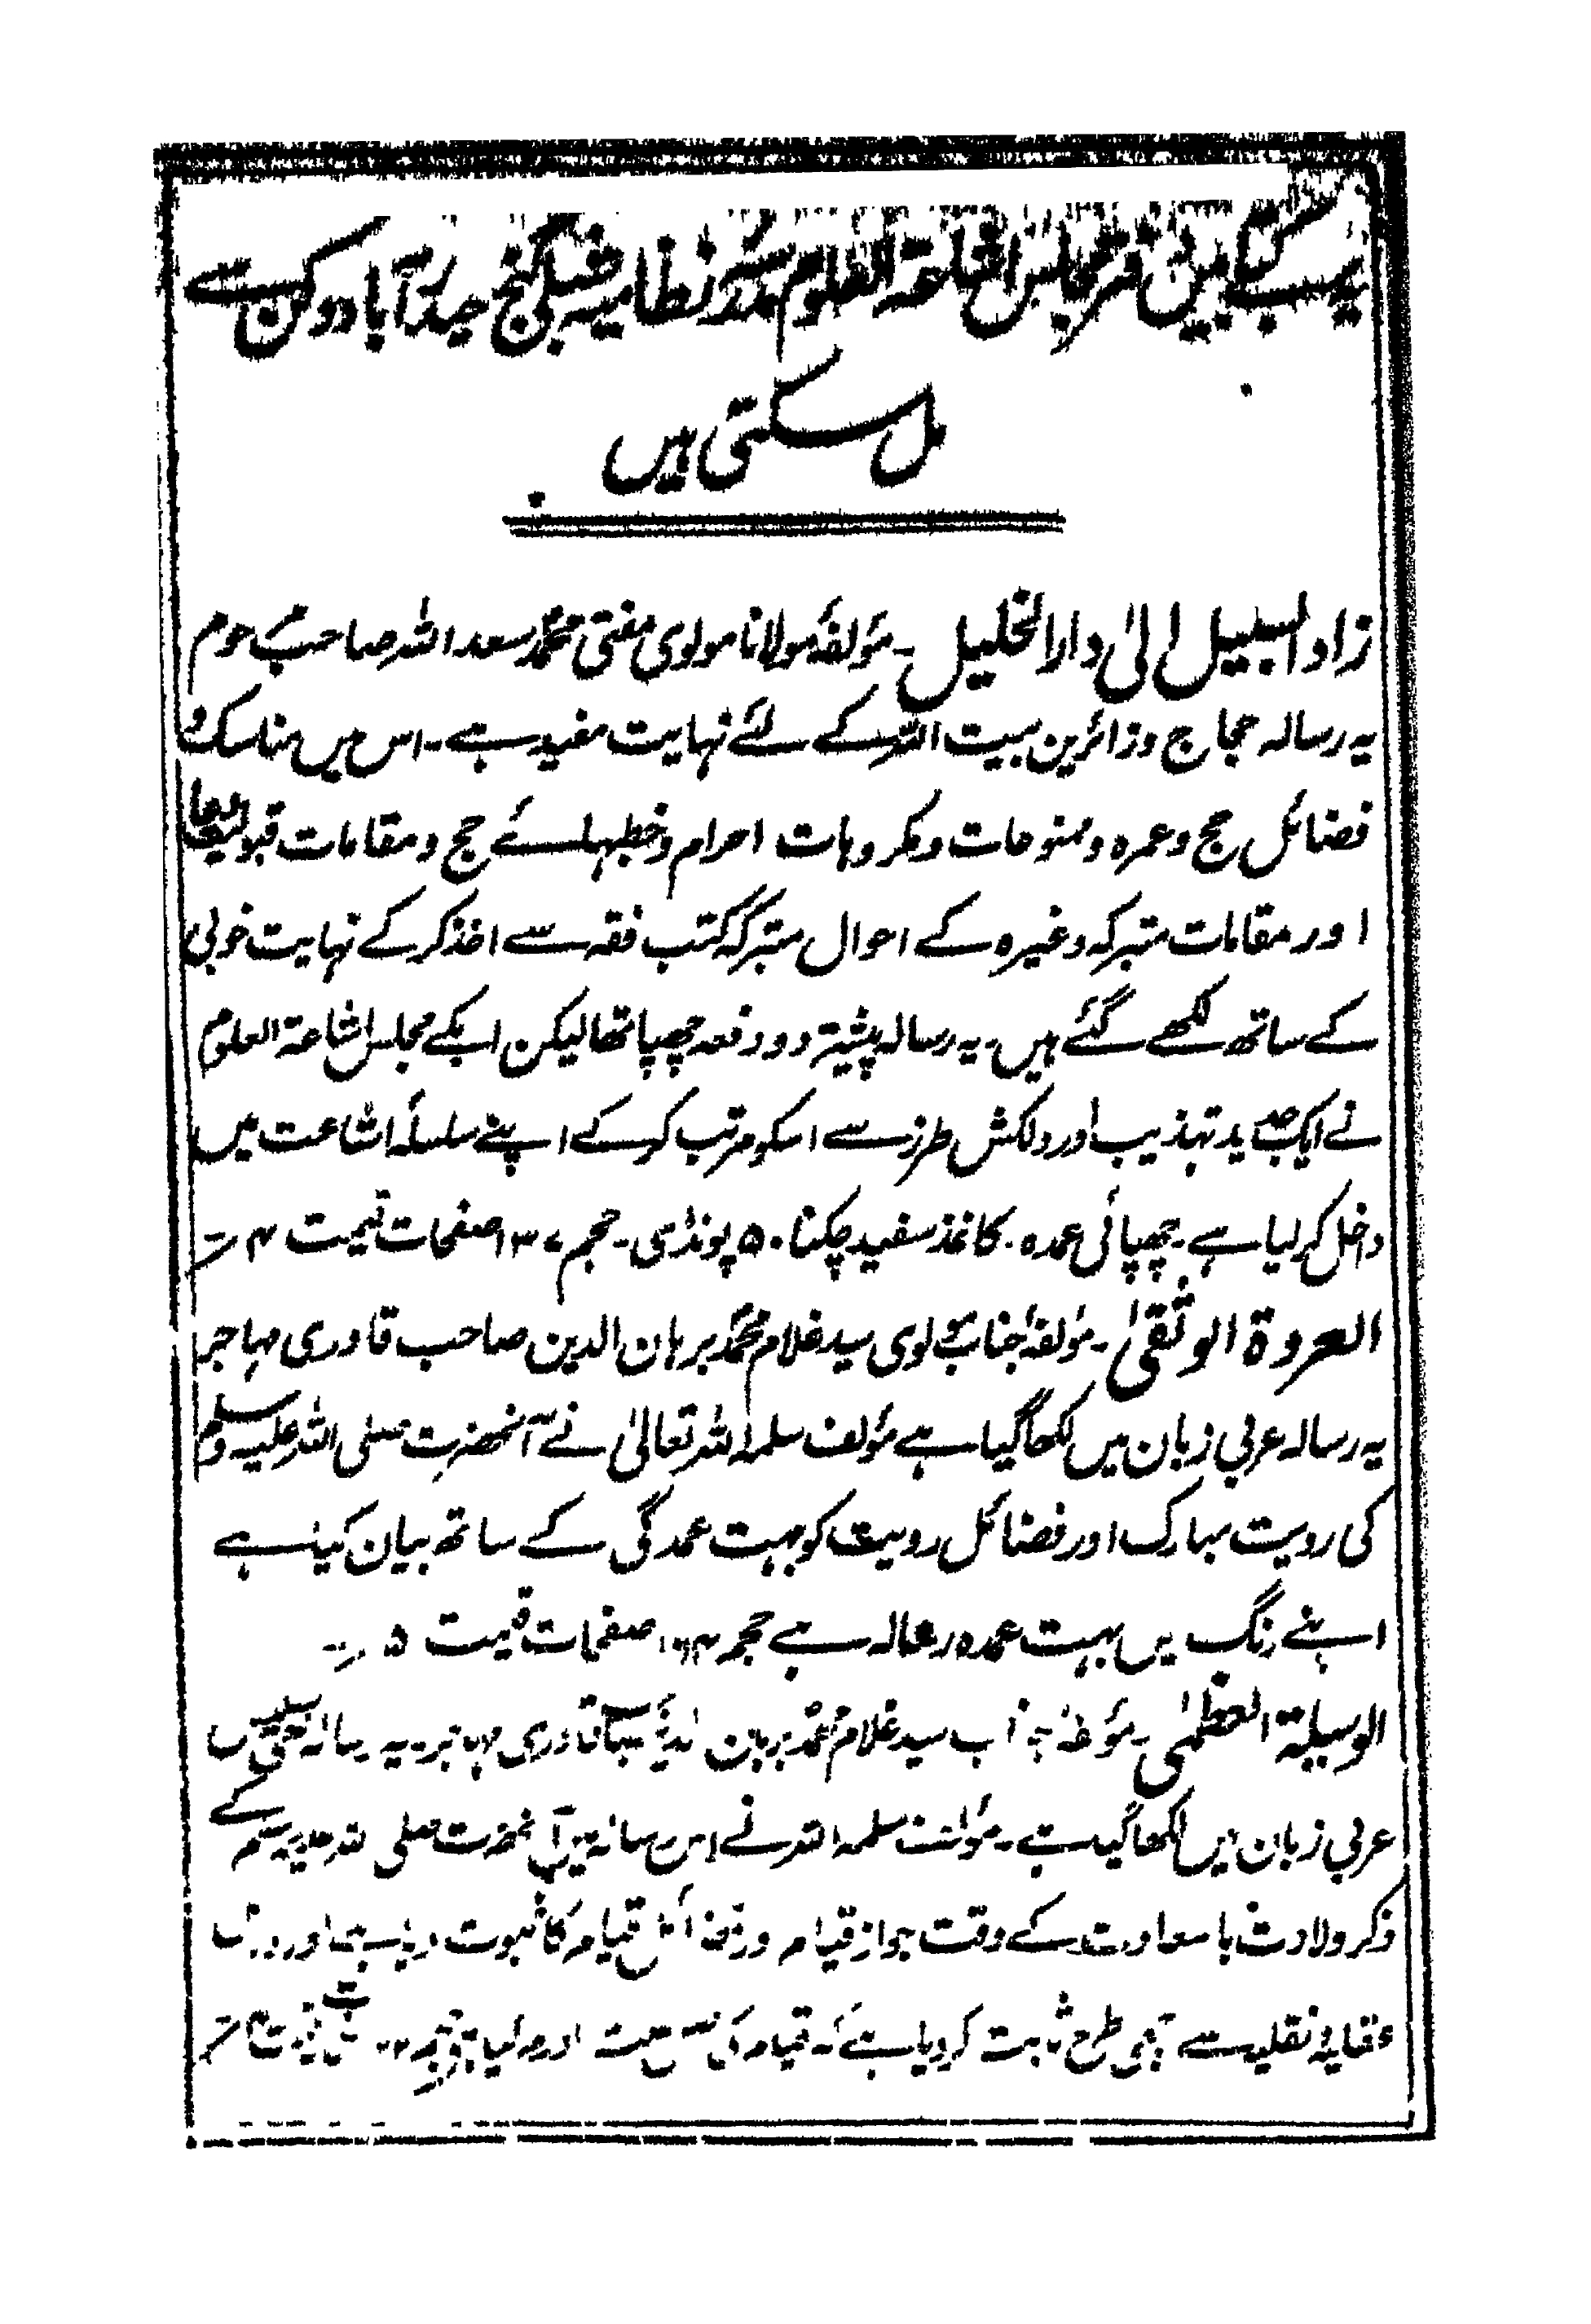 یہ سب کتابیں دفتر مجلس اشاعۃ العلوم مدرسہ نظامیہ شبلی گنج حیدرآباد دکن سے
مل سکتی ہیں
زاد السبیل الیٰ دار الخلیل۔ مؤلفۂ مولانا مولوی مفتی محمد سعد اللہ صاحب مرحوم
یہ رسالہ حجاج و زائرین بیت اللہ کے لئے نہایت مفید ہے۔ اس میں مناسک و
فضائل حج و عمرہ و ممنوعات و مکروہات احرام و خطبہائے حج و مقامات قبولیت دعا
اور مقامات متبرکہ وغیرہ کے احوال متبرکہ کتب فقہ سے اخذ کر کے نہایت خوبی
کے ساتھ لکھے گئے ہیں۔ یہ رسالہ پیشتر دو دفعہ چھپا تھا لیکن ابکے مجلس اشاعۃ العلوم
نے ایک جدید تہذیب اور دلکش طرز سے اسکو مرتب کر کے اپنے سلسلۂ اشاعت میں
داخل کر لیا ہے۔ چھپائی عمدہ۔ کاغذ سفید چکنا ۵۰ پونڈی۔ حجم ۱۳۷ صفحات قیمت ۴ ؍
العروۃ الوثقیٰ۔ مؤلفۂ جناب مولوی سید غلام محمد برہان الدین صاحب قادری مہاجر
یہ رسالہ عربی زبان میں لکھا گیا ہے مؤلف سلمہ اللہ تعالیٰ نے آنحضرت صلی اللہ علیہ وسلم
کی رویت مبارک اور فضائل رویت کو بہت عمدگی کے ساتھ بیان کیا ہے
اپنے رنگ میں بہت عمدہ رسالہ ہے حجم صفحات قیمت ۵ ؍
الوسیلۃ العظمیٰ۔ مؤلفۂ جناب سید غلام محمد برہان الدین صاحب قادری مہاجر۔ یہ رسالہ بھی سلیس
عربی زبان میں لکھا گیا ہے۔ مؤلف سلمہ اللہ نے اس رسالہ میں آنحضرت صلی اللہ علیہ وسلم کے
ذکر ولادت با سعادت کے وقت جواز قیام و فضائل قیام کا ثبوت دیا ہے اور
عقلیہ و نقلیہ سے اچھی طرح ثابت کر دیا ہے کہ قیام کی